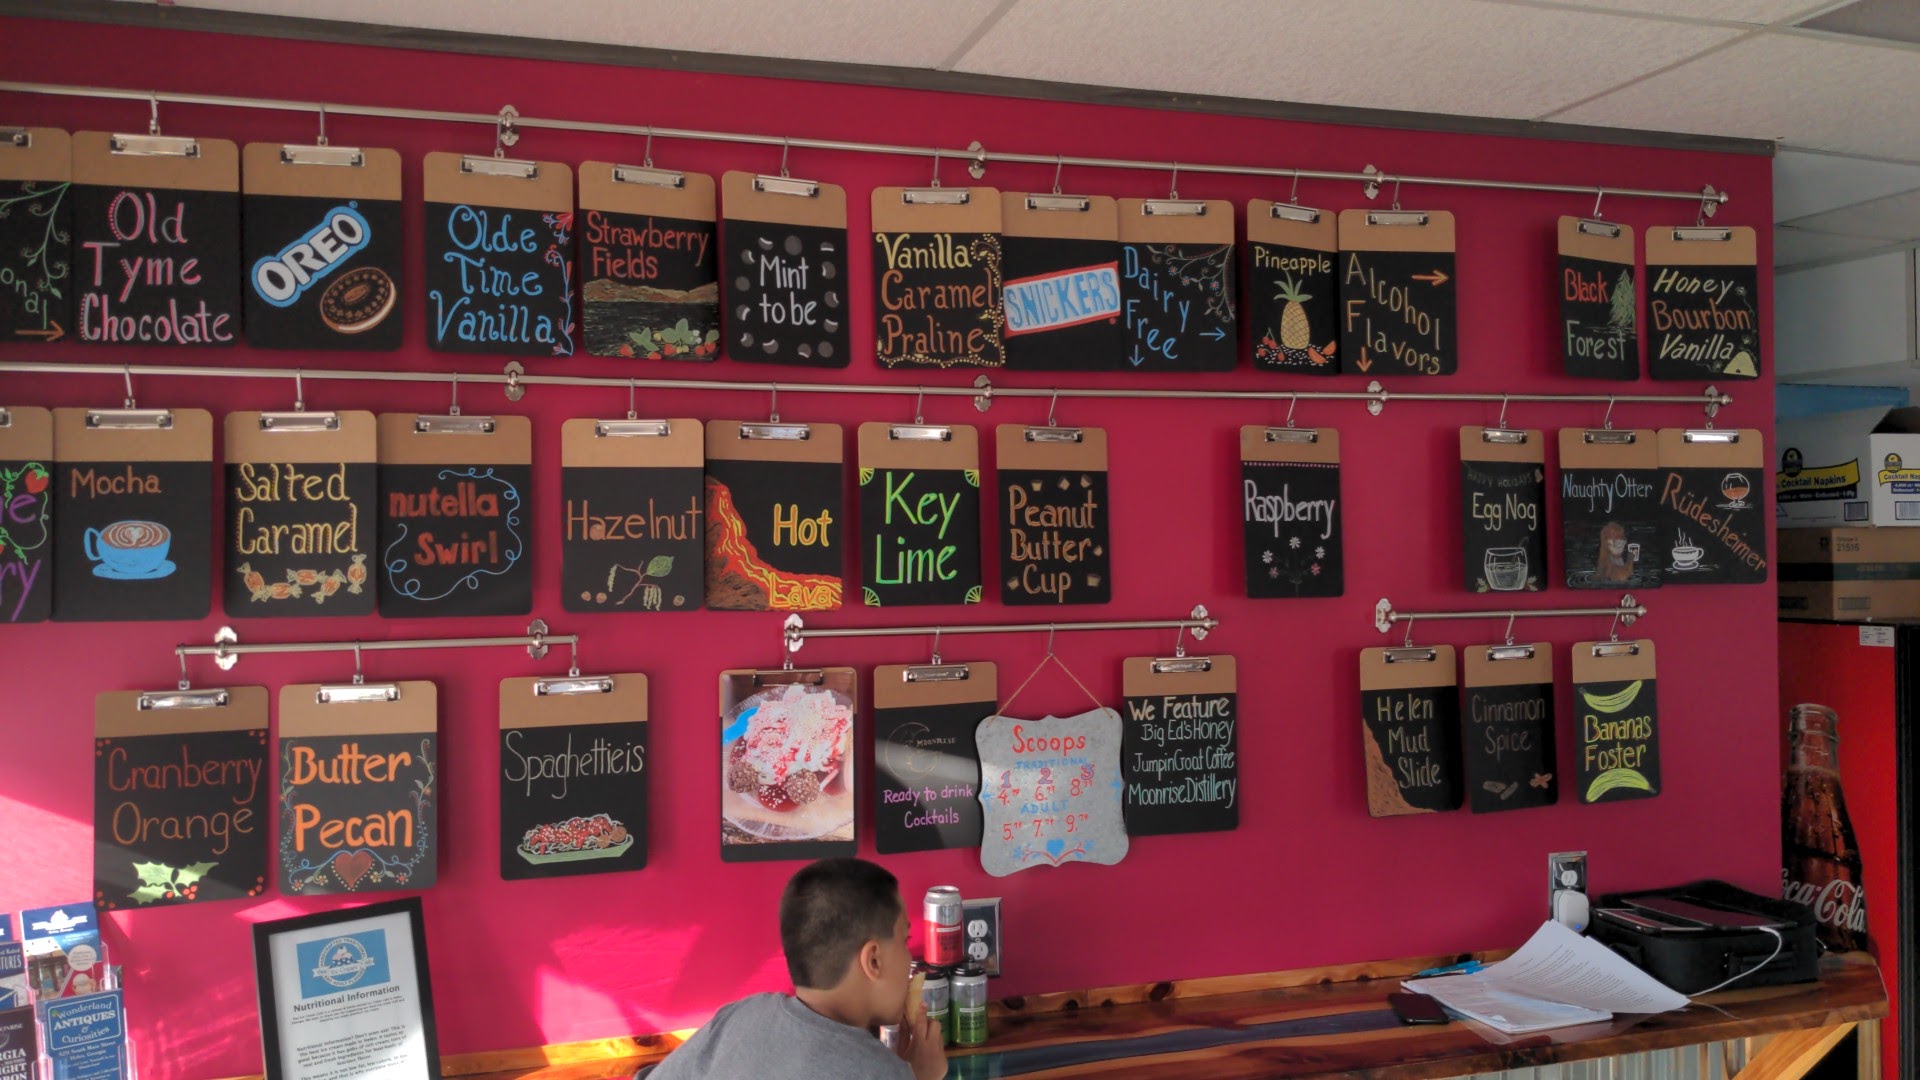 onal
Old
Tyme
Chocolate
OREO
Olde
Time
Vanilla
Strawberry
Fields
Mint
to be
Vanilla
Caramel
Praline
SNICKERS
Dairy
Free
Pineapple
Alcohol
Flavors
Black
Forest
Honey
Bourbon
Vanilla
e
ry
Mocha
Salted
Caramel
nutella
Swirl
Hazelnut
Hot
Lava
Key
Lime
Peanut
Butter
Cup
Raspberry
HAPPY HOLIDAYS
Egg Nog
Naughty Otter
Rüdesheimer
Cranberry
Orange
Butter
Pecan
Spaghettieis
MOONRISE
Ready to drink
Cocktails
Scoops
TRADITIONAL
1 2 3
ADULT
We Feature
Big Ed's Honey
Jumpin Goat Coffee
Moonrise Distillery
Helen
Mud
Slide
Cinnamon
Spice
Bananas
Foster
Cocktail Napkins
Cocktail Nap
21515
Coca-Cola
Nutritional Information
Wonderland
ANTIQUES
&
Curiosities